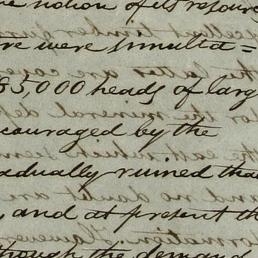 e notion of its resour
re were simulta=
85,000 heads of larg
couraged by the
adually ruined tha
, and at present th
though the demand